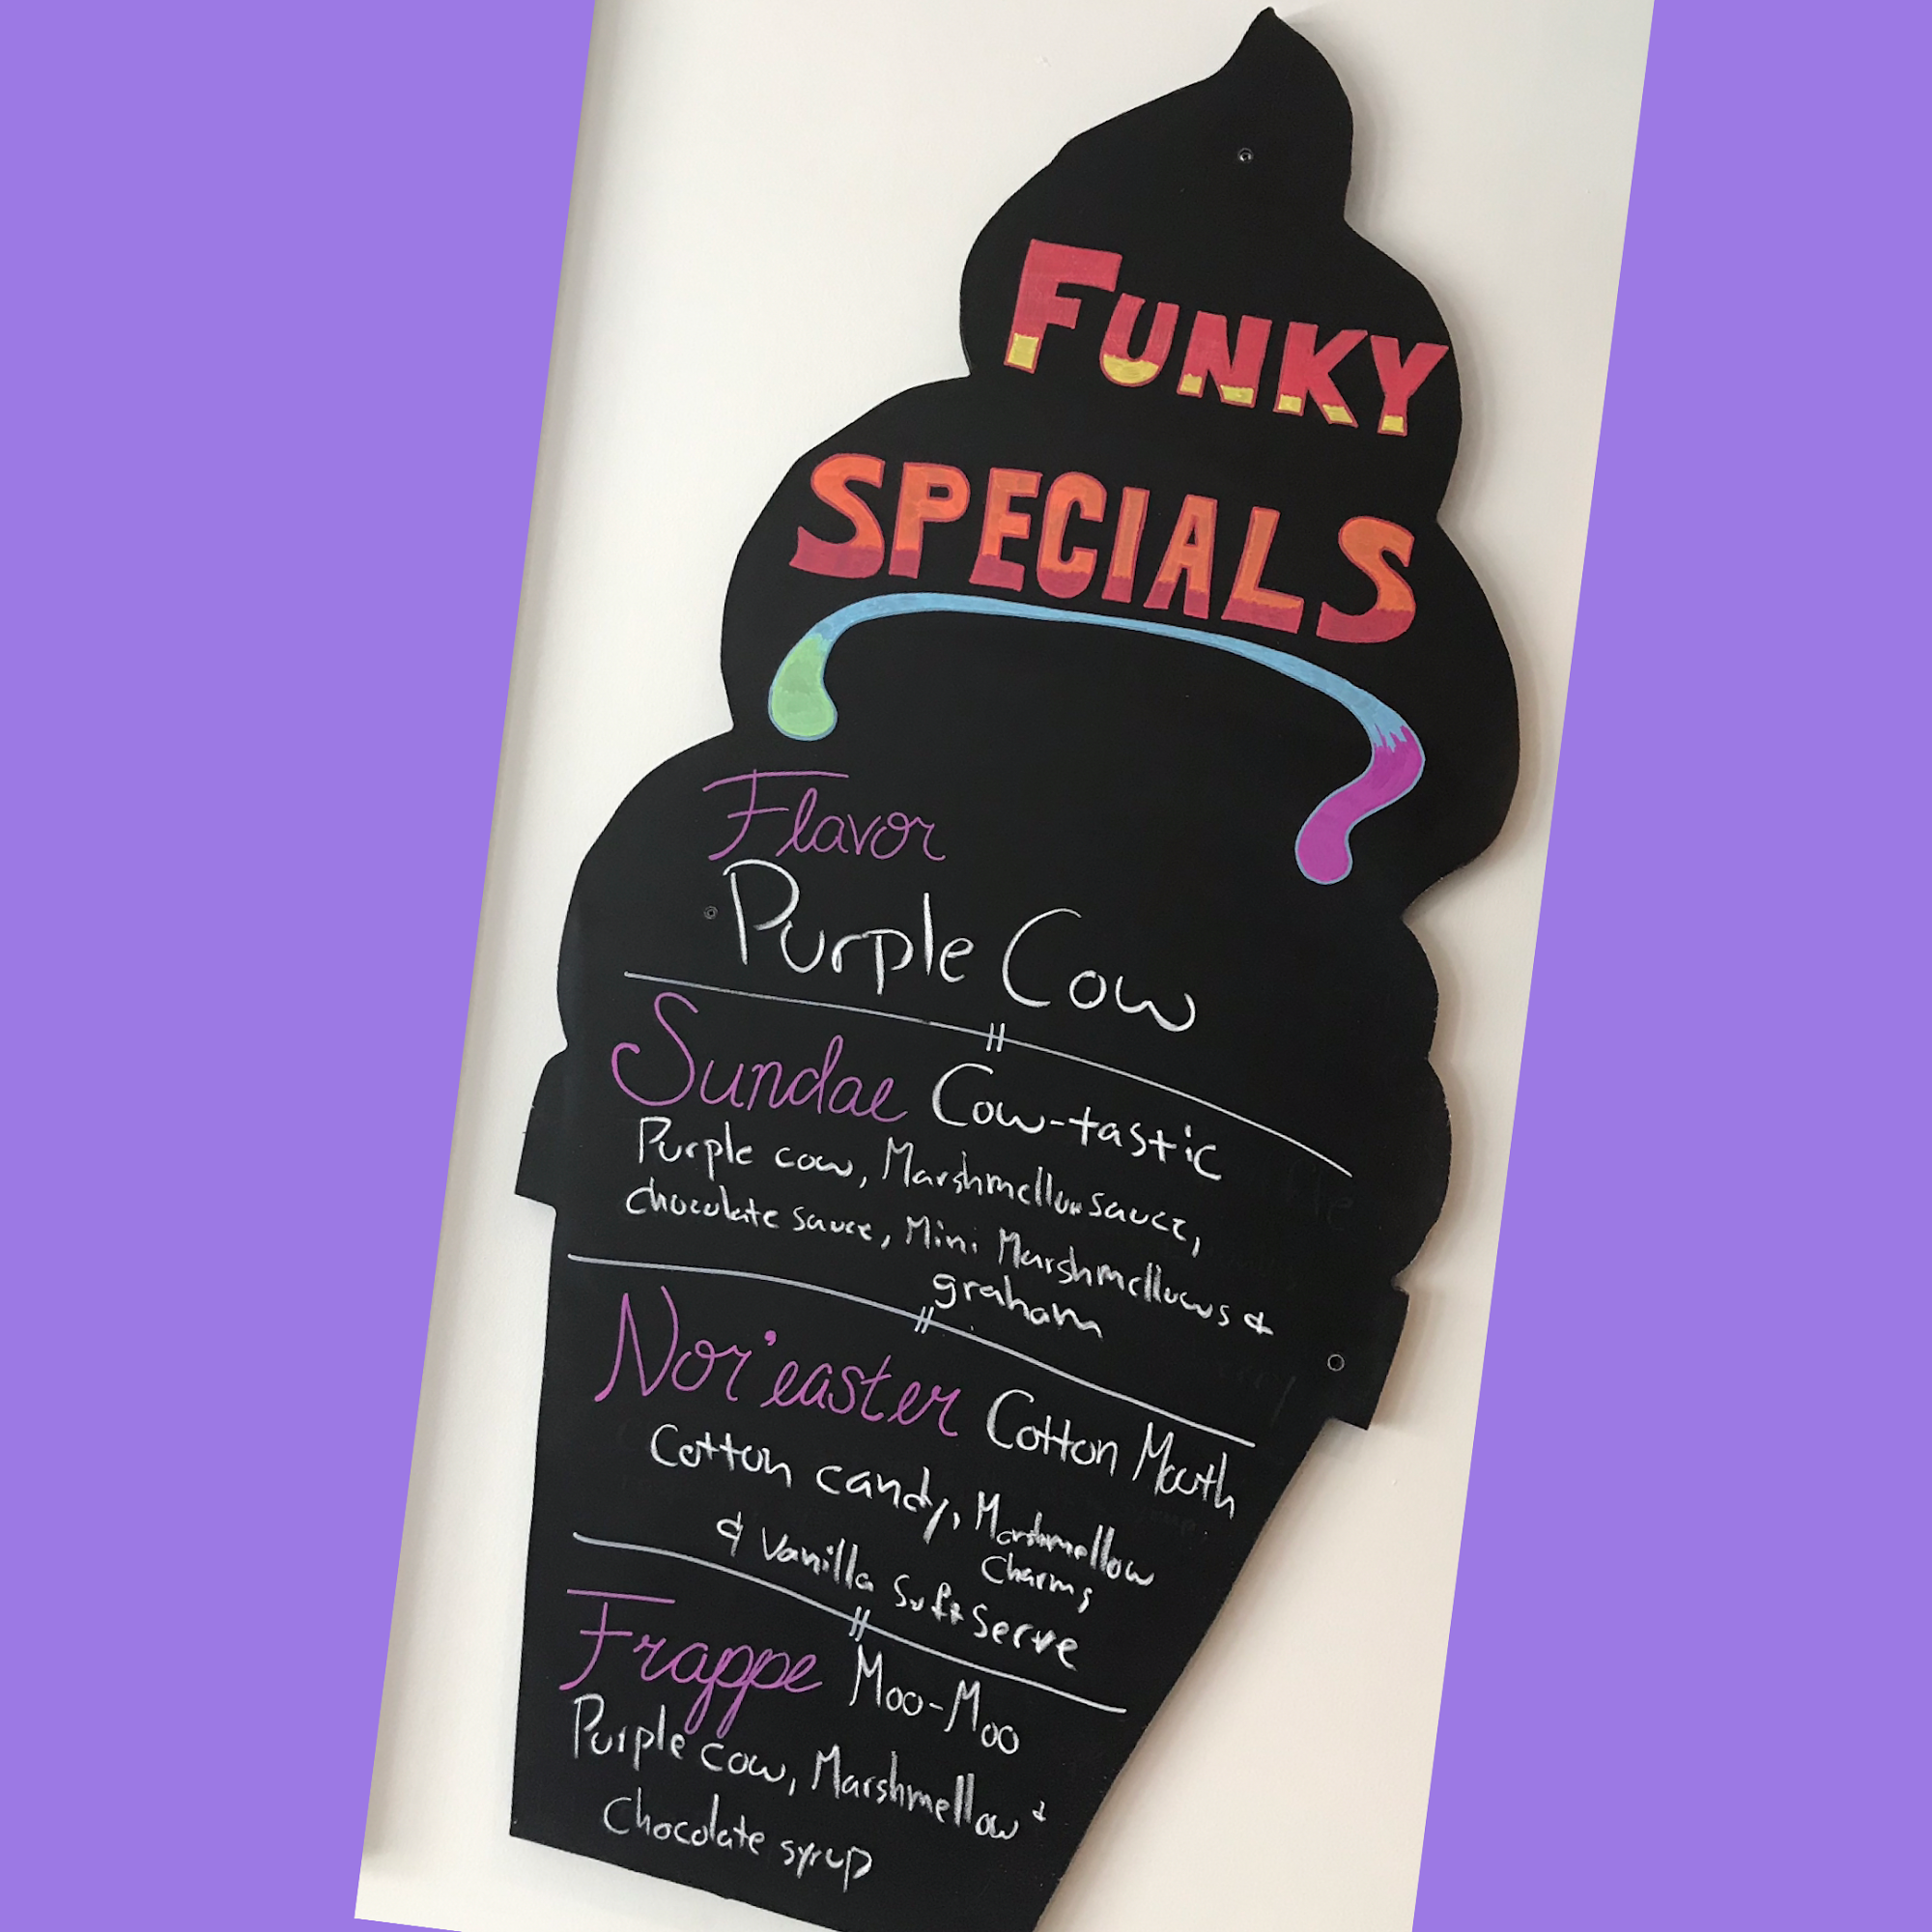 FUNKY
SPECIALS
Flavor
Purple Cow
Sundae Cow-tastic
Purple cow, Marshmellow sauce,
chocolate sauce, Mini Marshmellows &
graham
Nor'easter Cotton Mouth
Cotton candy, Marshmellow
Charms
& Vanilla Soft Serve
Frappe Moo-Moo
Purple cow, Marshmellow &
Chocolate syrup